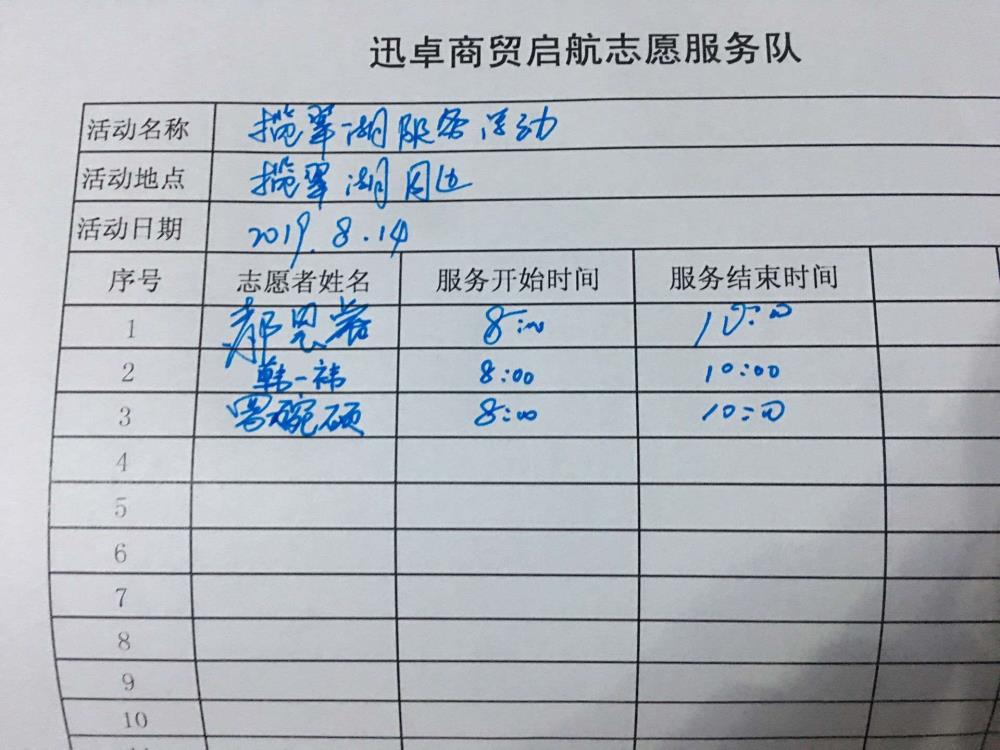 迅卓商贸启航志愿服务队
活动名称 揽翠湖服务活动
活动地点 揽翠湖周边
活动日期 2019.8.14
序号 志愿者姓名 服务开始时间 服务结束时间
1 8:00 10:00
2 韩一祎 8:00 10:00
3 8:00 10:00
4
5
6
7
8
9
10